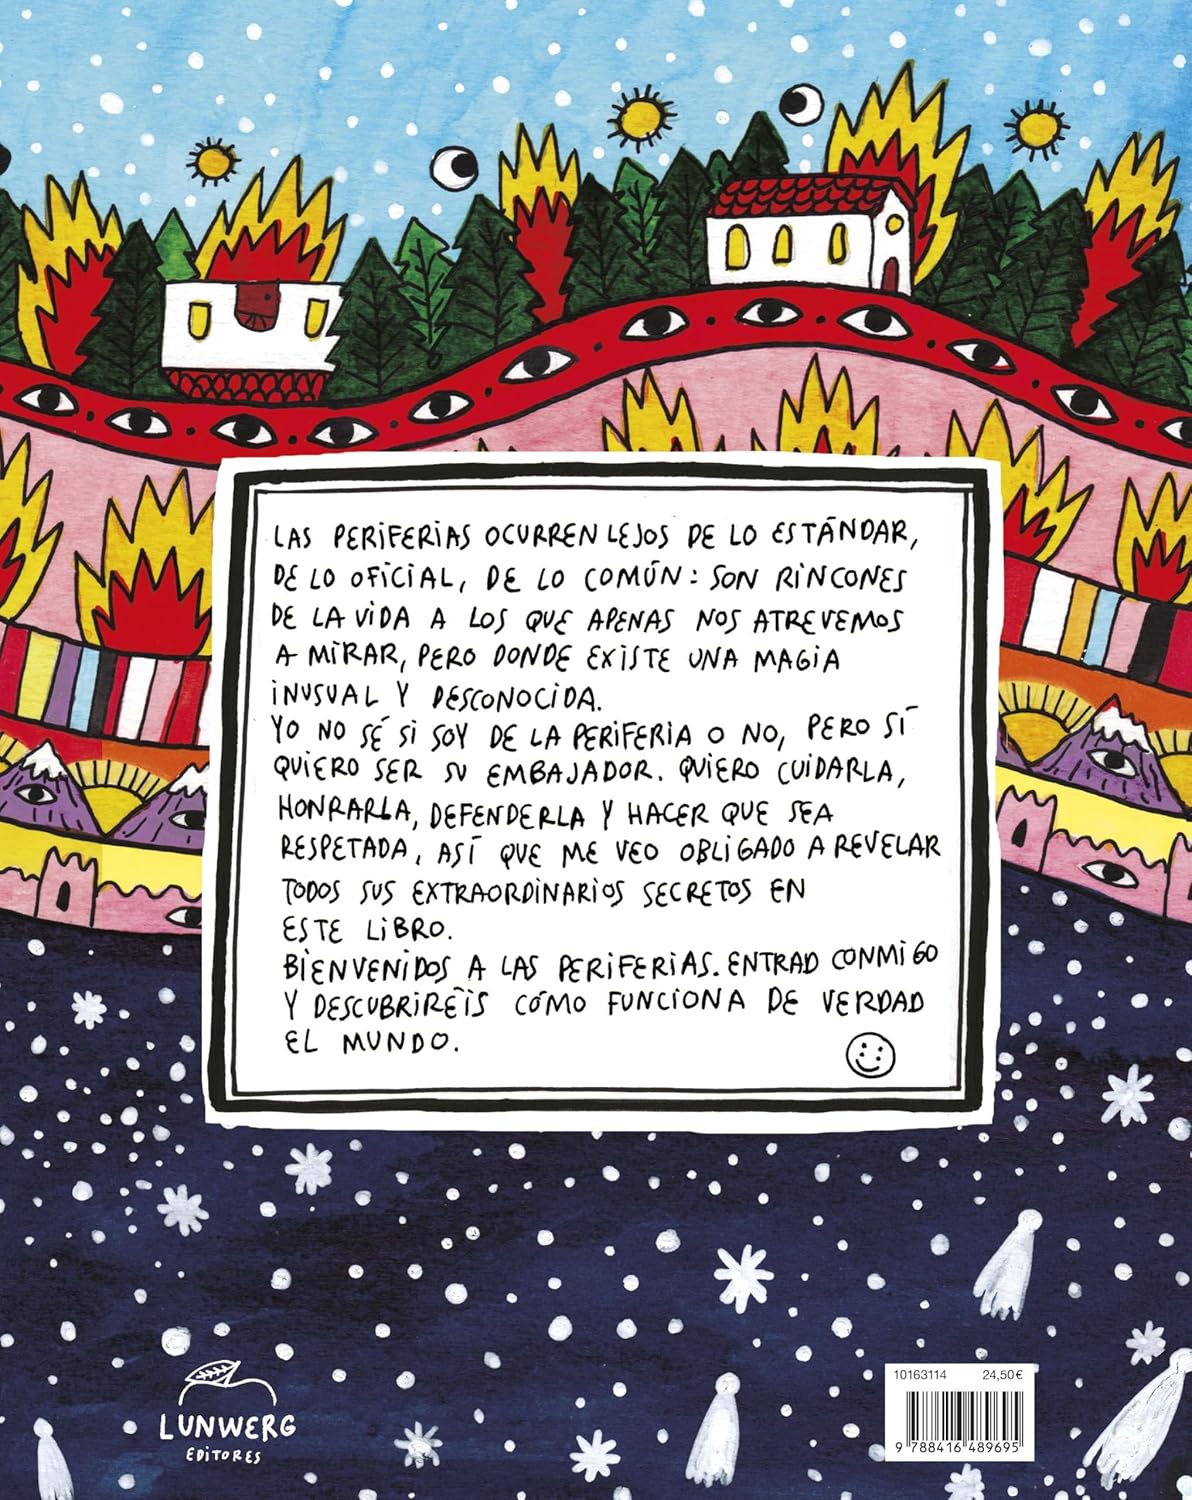 LAS PERIFERIAS OCURREN LEJOS DE LO ESTÁNDAR,
DE LO OFICIAL, DE LO COMÚN: SON RINCONES
DE LA VIDA A LOS QUE APENAS NOS ATREVEMOS
A MIRAR, PERO DONDE EXISTE UNA MAGIA
INUSUAL Y DESCONOCIDA.
YO NO SÉ SI SOY DE LA PERIFERIA O NO, PERO SÍ
QUIERO SER SU EMBAJADOR. QUIERO CUIDARLA,
HONRARLA, DEFENDERLA Y HACER QUE SEA
RESPETADA, ASÍ QUE ME VEO OBLIGADO A REVELAR
TODOS SUS EXTRAORDINARIOS SECRETOS EN
ESTE LIBRO.
BIENVENIDOS A LAS PERIFERIAS. ENTRAD CONMIGO
Y DESCUBRIRÉIS CÓMO FUNCIONA DE VERDAD
EL MUNDO.
LUNWERG
EDITORES
10163114 24,50€
9 788416 489695